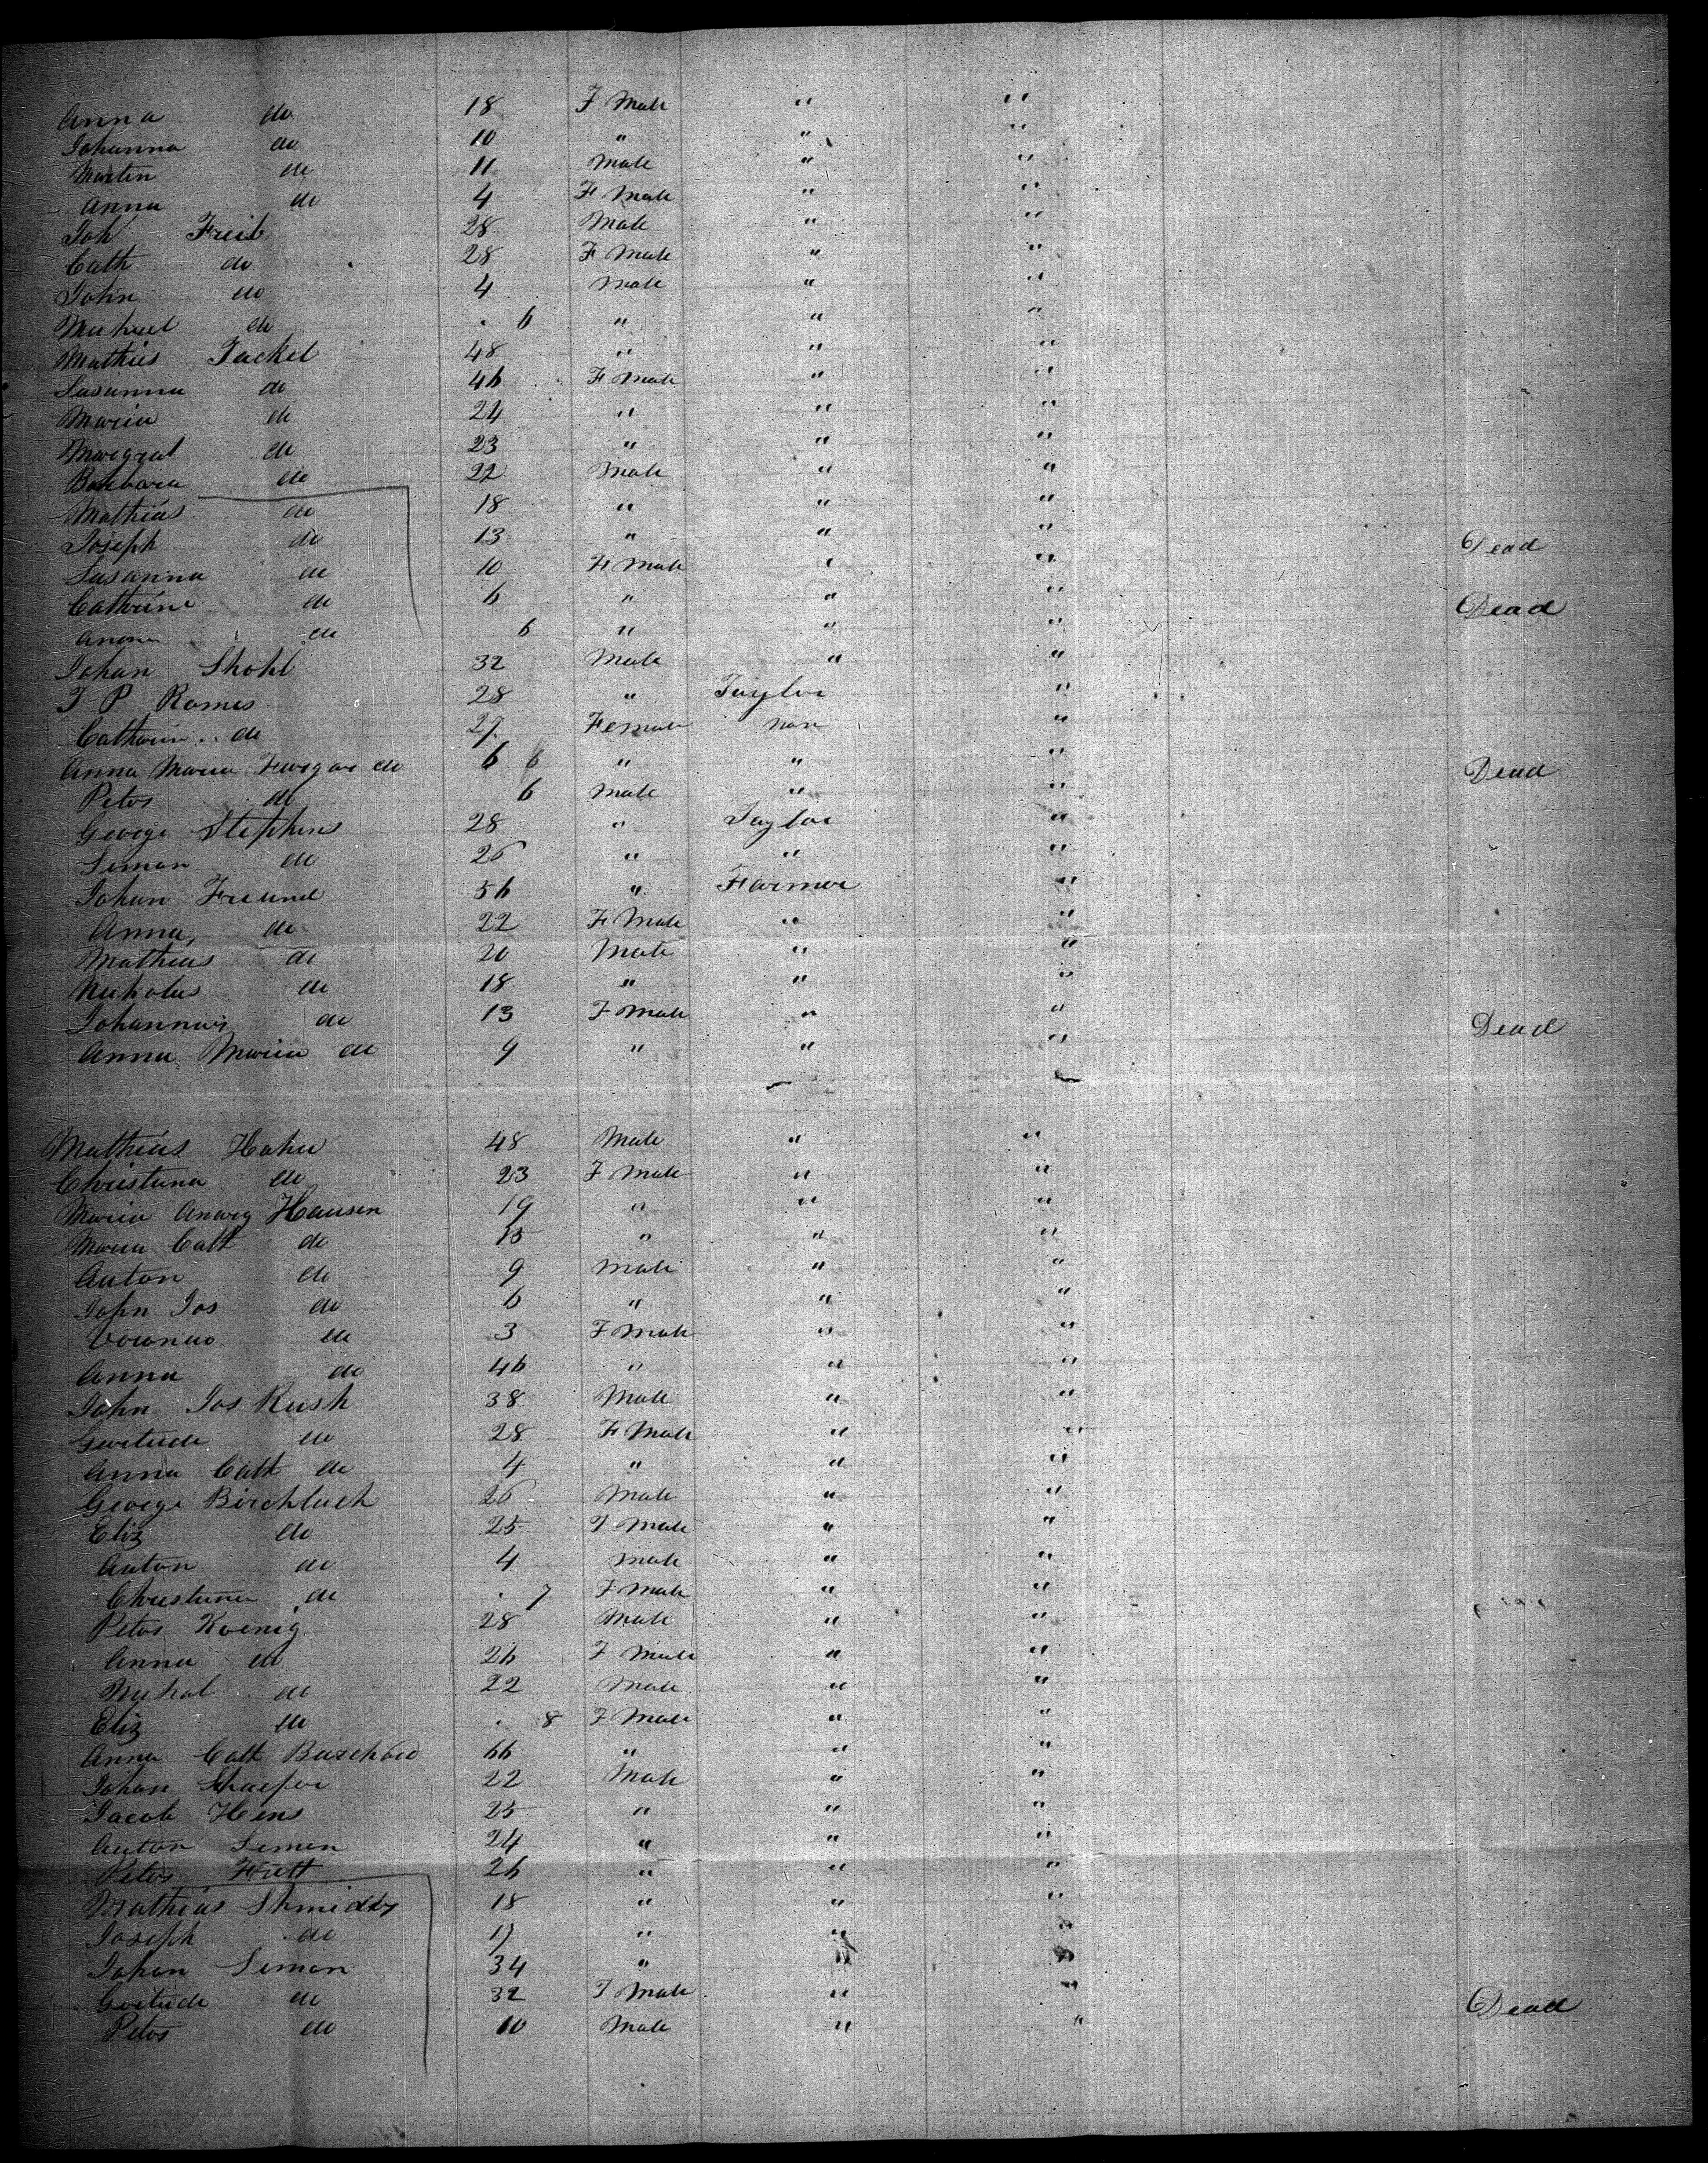 Anna do 18 F Male " "
Johanna do 10 " " "
Martin do 11 Male " "
Anna do 4 F Male " "
Joh Freib 28 Male " "
Cath do 28 F Male " "
John do 4 Male " "
Michael do . 6 " " "
Mathies Jackel 48 " " "
Susanna do 46 F Male " "
Maria do 24 " " "
Margrat do 23 " " "
Barbara do 22 Male " "
Mathias do 18 " " "
Joseph do 13 " " " Dead
Susanna do 10 F Male " "
Cathrine do 6 " " " Dead
Anna do 6 " " "
Johan Shohl 32 Male " "
J P Romes 28 " Taylor "
Catharin do 27 Female non "
Anna Maria do 6 6 " " " Dead
Peter do 6 Male " "
George Stephens 28 " Taylor "
Simon do 26 " " "
Johan Freund 56 " Farmer "
Anna, do 22 F Male " "
Mathias do 20 Male " "
Nicholas do 18 " " "
Johannas do 13 F Male " " Dead
Anna Maria do 9 " " "
Mathias Hahn 48 Male " "
Christana do 23 F Male " "
Maria Hausen 19 " " "
Maria Cath do 15 " " "
Anton do 9 Male " "
John Jos do 6 " " "
do 3 F Male " "
Anna do 46 " " "
John Jos Rush 38 Male " "
Gertrude do 28 F Male " "
Anna Cath do 4 " " "
George Birchlach 26 Male " "
Eliz do 25 F Male " "
Anton do 4 Male " "
Christina do . 7 F Male " "
Peter Koenig 28 Male " "
Anna do 26 F Male " "
Michal do 22 Male " "
Eliz do . 8 F Male " "
Anna Cath 66 " " "
Johan Schaefer 22 Male " "
Jacob Hens 25 " " "
Anton Simon 24 " " "
Peter Frett 26 " " "
Mathias Shmidts 18 " " "
Joseph do 17 " " "
Johan Simon 34 " " "
Gertrude do 32 F Male " " Dead
Peter do 10 Male " "